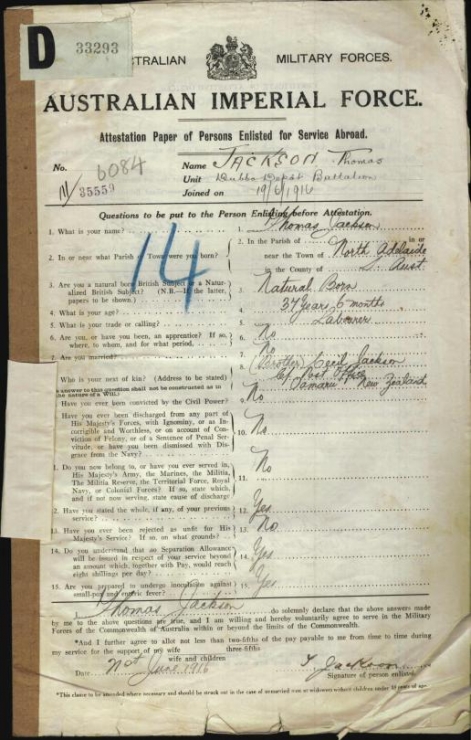 D 33293
AUSTRALIAN MILITARY FORCES.
AUSTRALIAN IMPERIAL FORCE.
Attestation Paper of Persons Enlisted for Service Abroad.
No. 6084
Name JACKSON Thomas
Unit Dubbo Depot Battalion
35559
Joined on 19/6/1916
Questions to be put to the Person Enlisting before Attestation.
14
1. What is your name? 1. Thomas Jackson
2. In or near what Parish or Town were you born? 2. In the Parish of in or
near the Town of North Adelaide
in the County of S. Aust.
3. Are you a natural born British Subject or a Natu-
ralized British Subject? (N.B.—If the latter,
papers to be shown.) 3. Natural Born
4. What is your age? 4. 37 years 6 months
5. What is your trade or calling? 5. Labourer
6. Are you, or have you been, an apprentice? If so,
where, to whom, and for what period. 6. No
7. Are you married? 7. No
8. Brother Cecil Jackson
Who is your next of kin? (Address to be stated) c/o Post Office
Timaru New Zealand
answer to this question shall not be construed as in
the nature of a Will.)
Have you ever been convicted by the Civil Power? No
Have you ever been discharged from any part of
His Majesty's Forces, with Ignominy, or as In-
corrigible and Worthless, or on account of Con-
viction of Felony, or of a Sentence of Penal Ser-
vitude, or have you been Dismissed with Dis-
grace from the Navy? 10. No
1. Do you now belong to, or have you ever served in,
His Majesty's Army, the Marines, the Militia,
The Militia Reserve, the Territorial Force, Royal
Navy, or Colonial Forces? If so, state which,
and if not now serving, state cause of discharge 11. No
2. Have you stated the whole, if any, of your previous
service? 12. Yes
13. Have you ever been rejected as unfit for His
Majesty's Service? If so, on what grounds? 13. No
14. Do you understand that no Separation Allowance
will be issued in respect of your service beyond
an amount which, together with Pay, would reach
eight shillings per day? 14. Yes
15. Are you prepared to undergo inoculation against
small-pox and enteric fever? 15. Yes
I, Thomas Jackson do solemnly declare that the above answers made
by me to the above questions are true, and I am willing and hereby voluntarily agree to serve in the Military
Forces of the Commonwealth of Australia within or beyond the limits of the Commonwealth.
*And I further agree to allot not less than two-fifths of the pay payable to me from time to time
three-fifths
during my service for the support of my wife
wife and children
Date June 1916 T. Jackson
Signature of person enlisted.